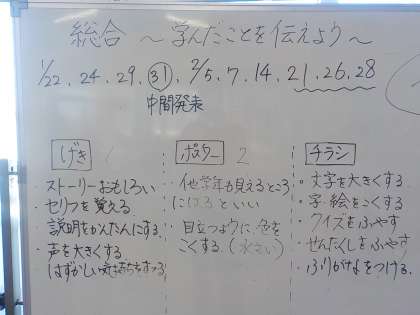 総合 ～学んだことを伝えよう～
1/22.24.29.㉛.2/5.7.14.21.26.28
中間発表
げき
・ストーリーおもしろい
・セリフを覚える
・説明をかんたんにする.
・声を大きくする.
・はずかしい気持ちをすてる
ポスター 2
・他学年も見えるところ
にはるといい
・目立つように、色を
こくする.(水さい)
チラシ
・文字を大きくする
・字・絵をこくする
・クイズをふやす
・せんたくしをふやす
・ふりがなをつける.